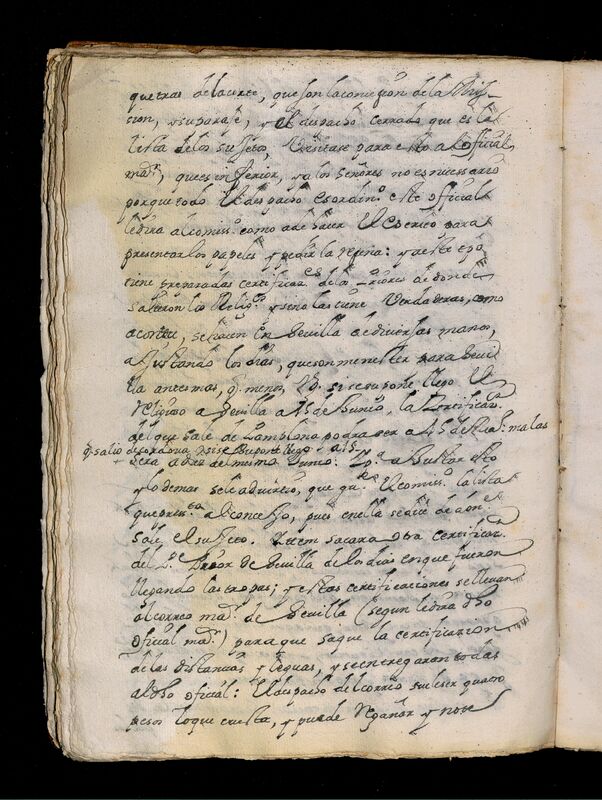 que tras de la corte, que son la concession de la Mis-
cion, y su paraje, y el despacho cerrado que es la
lista de los sujetos, Visitase para esto al Oficial
maor, que es inferior, y a los señores no es necessario
porque todo el despacho es ordin.o este oficial
le dira al comiss.o como a de hacer el escrito para
presentar los papeles y pedir la
tiene preparadas certificaz.es de los Priores de donde
salieron los Relig.s y si no las tiene Verdaderas, como
acontece, se hacen en Sevilla de diversas manos,
ajustando los dias, que son menester para Sevi
lla antes mas, q menos, si se supone llego el
Religioso a Sevilla a 15 de Junio, la Certificaz.
del que sale de Pamplona podra ser a 15 de mas las
q salio de cordova si se supone llego a 15
sera a dos del mismo Junio. ajustar esto
y lo demas se le advierte, que g.e el comiss.o la lista
que press.ta al Concejo, pues en ella se dice de don.e
sale el sujeto. Item sacara otra certificaz.
del P.e Prior de Sevilla de los dias en que fueron
llegando las tropas; y estas certificaciones se llevan
al correo ma.r de Sevilla (segun le dira dho
oficial ma.r) para que saque la certificazion
de las distancias y leguas, y se entregaran todas
al dho oficial: El despacho del correo suele ser quatro
pesos lo que cuesta, y puede Regañar y no se